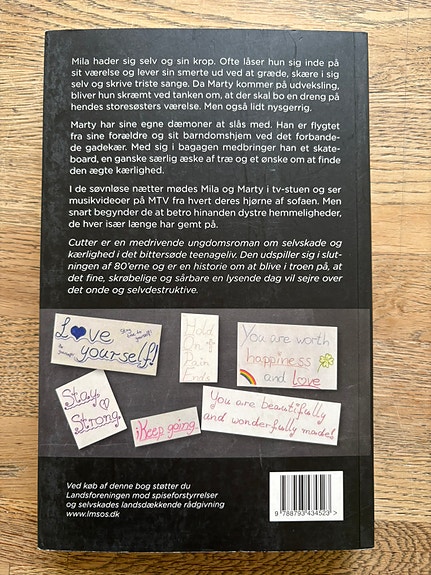 Mila hader sig selv og sin krop. Ofte låser hun sig inde på
sit værelse og lever sin smerte ud ved at græde, skære i sig
selv og skrive triste sange. Da Marty kommer på udveksling,
bliver hun skræmt ved tanken om, at der skal bo en dreng på
hendes storesøsters værelse. Men også lidt nysgerrig.
Marty har sine egne dæmoner at slås med. Han er flygtet
fra sine forældre og sit barndomshjem ved det forbande-
de gadekær. Med sig i bagagen medbringer han et skate-
board, en ganske særlig æske af træ og et ønske om at finde
den ægte kærlighed.
I de søvnløse nætter mødes Mila og Marty i tv-stuen og ser
musikvideoer på MTV fra hvert deres hjørne af sofaen. Men
snart begynder de at betro hinanden dystre hemmeligheder,
de hver især længe har gemt på.
Cutter er en medrivende ungdomsroman om selvskade og
kærlighed i det bittersøde teenageliv. Den udspiller sig i slut-
ningen af 80'erne og er en historie om at blive i troen på, at
det fine, skrøbelige og sårbare en lysende dag vil sejre over
det onde og selvdestruktive.
Love
yourself!
Hold
On
Pain
Ends
You are worth
happiness
and love
Stay
Strong
¡Keep going.
You are beautifully
and wonderfully made!
Ved køb af denne bog støtter du
Landsforeningen mod spiseforstyrrelser
og selvskades landsdækkende rådgivning
www.lmsos.dk
9 788793 434523 >